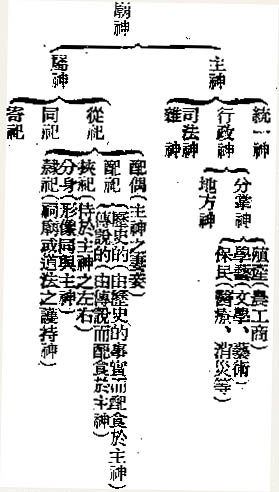 廟神
主神
統一神
行政神
分掌神
殖產（農工商）
學藝（文學、藝術）
保民（醫療、消災等）
地方神
司法神
雜神
屬神
從祀
配偶（主神之妻妾）
配祀
歷史的（由歷史的事實而配食於主神）
傳說的（由傳說而配食於主神）
挾祀（侍於主神之左右）
分身（形像同與主神）
隸祀（祠廟或道法之護持神）
同祀
寄祀